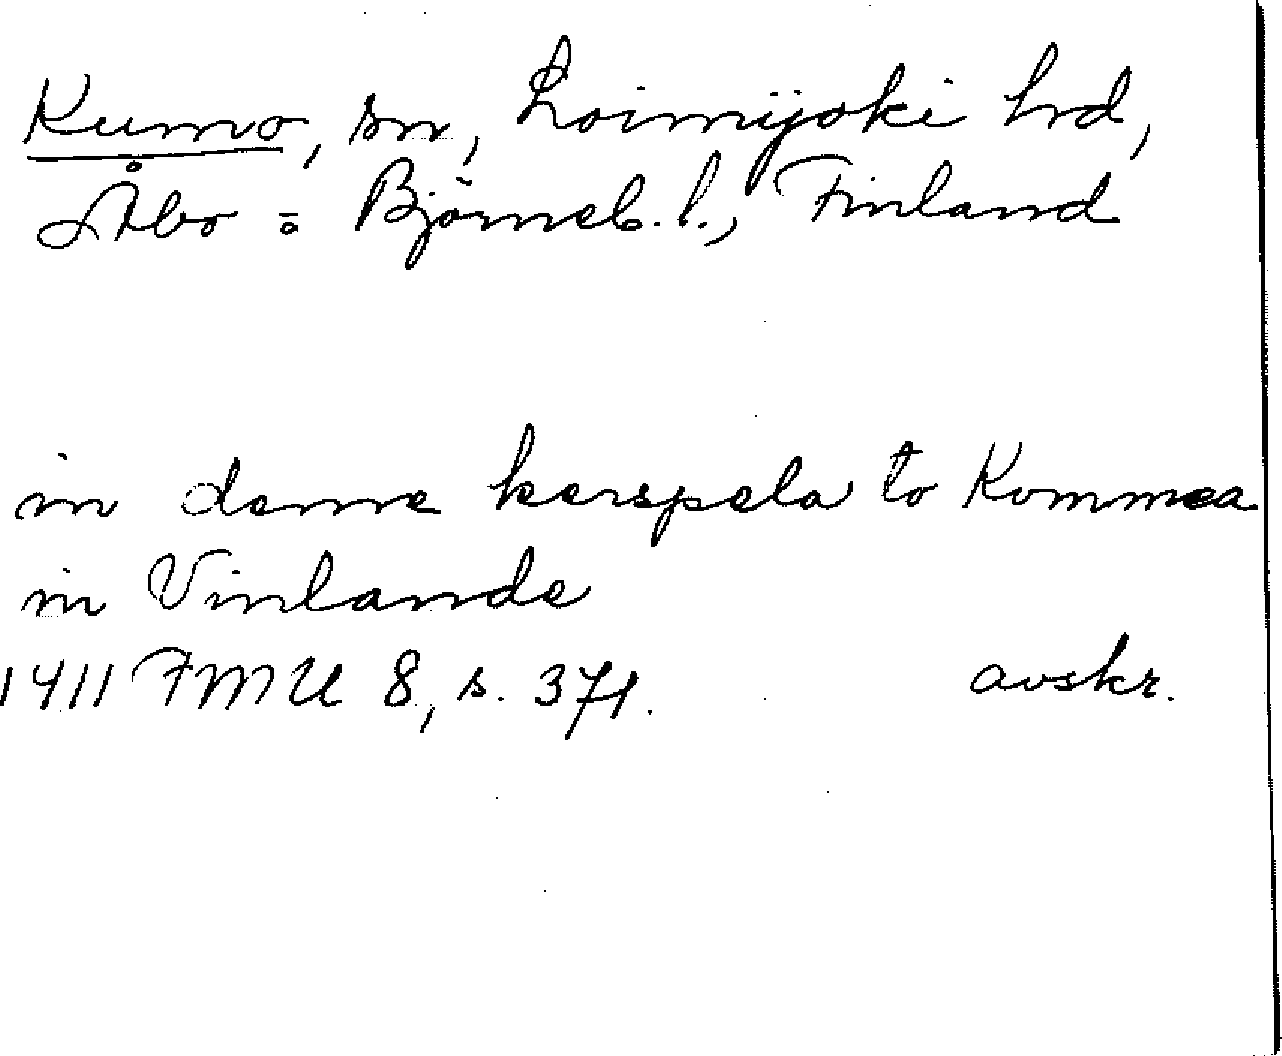 Kumo, sn, Loimijoki hrd,
Åbo = Björneb. l., Finland
in deme kerspela to Kommea
in Vinlande
1411 FMU 8, s. 371. avskr.